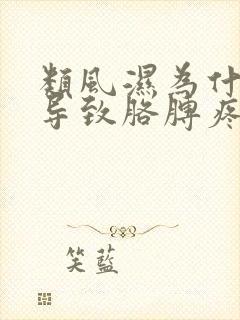 類風濕為什
导致胳脾疼
笑藍